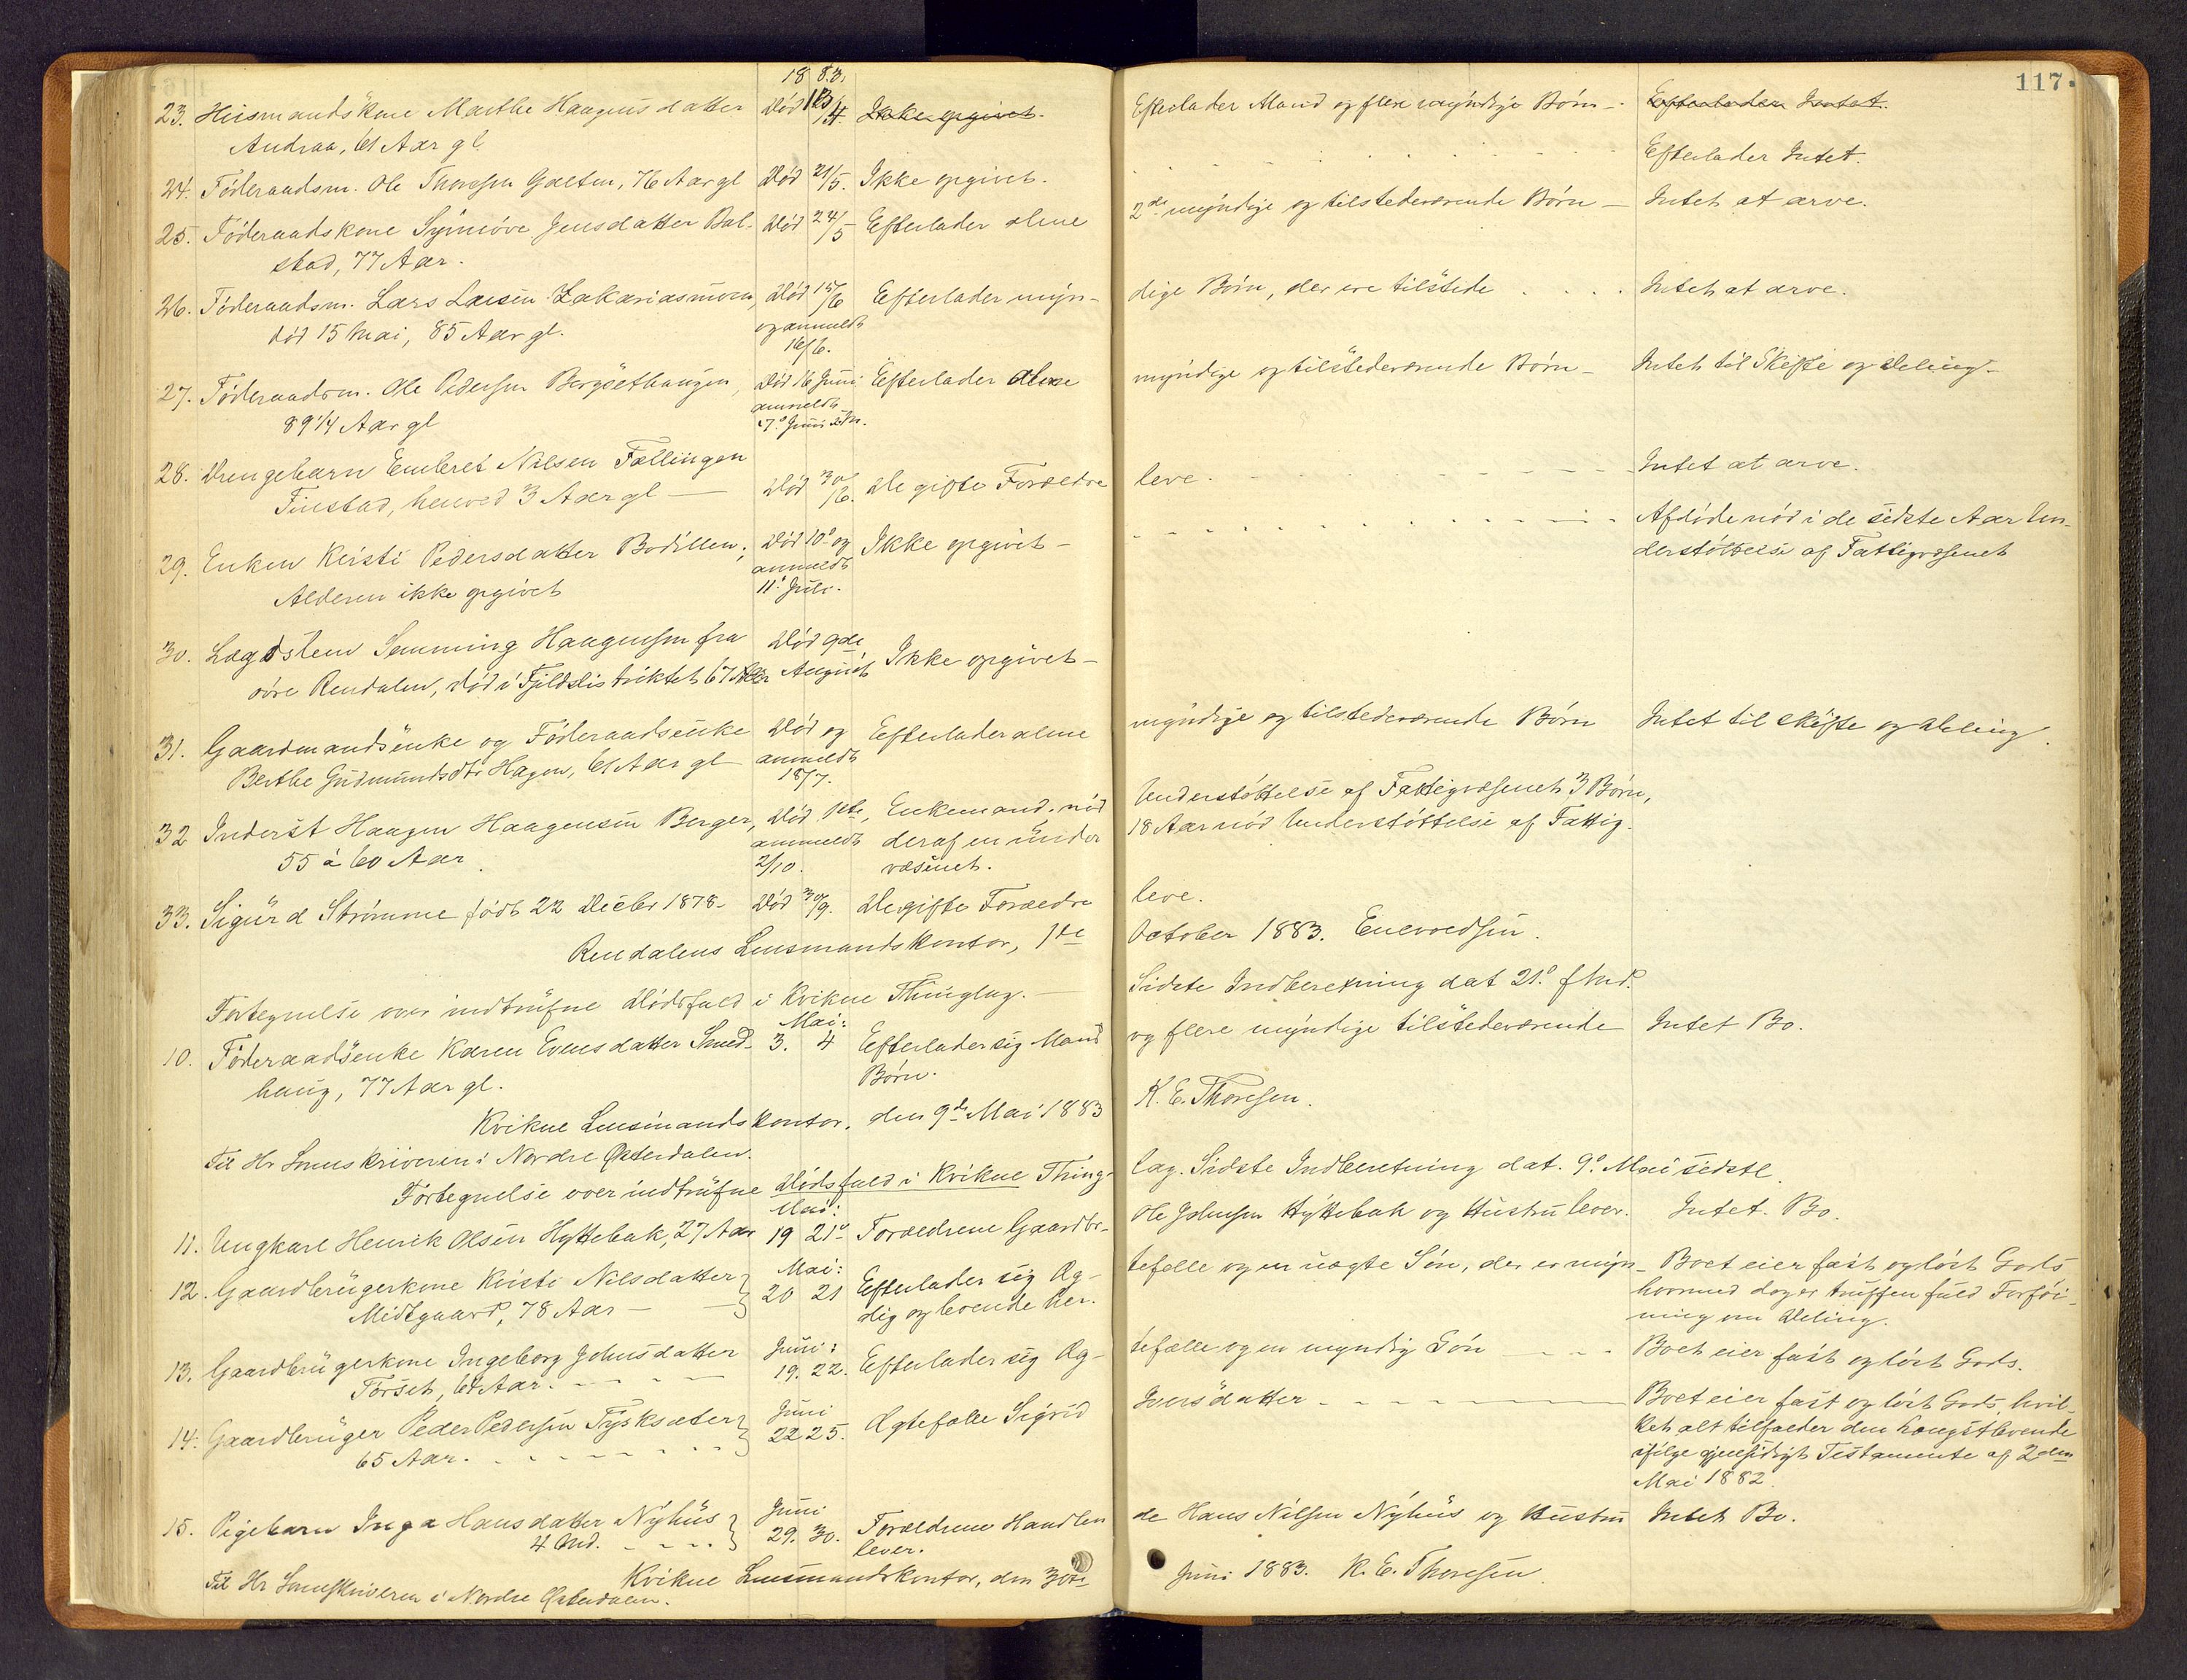 117.
1883.
23. Huusmandskone Marthe Haagensdatter Død 13/4. Ikke opgivet. Efterlader Mand og flere myndige Børn - Efterlader Intet.
Andraa, 61 Aar gl. Efterlader Intet.
24. Føderaadsm. Ole Thoresen Galten, 76 Aar gl Død 21/5. Ikke opgivet.
25. Føderaadskone Synnøve Jensdatter Bol- Død 24/5 Efterlader alene 2de myndige og tilstedeværende Børn - Intet at arve.
stad, 77 Aar.
26. Føderaadsm. Lars Larsen Zakariasmoen, Død 15/6 Efterlader myn- dige Børn, der ere tilstede . . . . Intet at arve.
død 15 Mai, 85 Aar gl. og anmeldt
16/6.
27. Føderaadsm. Ole Pedersen Bergsethaugen, Død 16 Juni Efterlader alene myndige og tilstedeværende Børn - Intet til Skifte og Deling -
89 1/4 Aar gl anmeldt
17de Juni
28. Drengebarn Embret Nilsen Fællingen
Finstad, henved 3 Aar gl — Død 30/6. De gifte Forældre leve. Intet at arve.
29. Enken Kirsti Pedersdatter Bodillen, Død 10de og Ikke opgivet - Afdøde nød i de sidste Aar Un-
Alderen ikke opgivet anmeldt derstøttelse af Fattigvæsenet
11te Juli.
30. Lægdslem Semming Haagensen fra Død 9de Ikke opgivet -
øvre Rendalen, død i Fjeldsdistriktet 67 Aar August
31. Gaardmandsenke og Føderaadsenke Død og Efterlader alene myndige og tilstedeværende Børn Intet til Skifte og Deling.
Berthe Gudmundsdtr Hagen, 61 Aar gl anmeldt
18/7.
32 Inderst Haagen Haagensen Berger, Død 1ste, Enkemand, nød Understøttelse af Fattigvæsenet 3 Børn,
55 à 60 Aar. anmeldt deraf en under 18 Aar nød Understøttelse af Fattig-
2/10. væsenet.
33. Sigurd Strømme født 22 Decbr 1878 - Død 30/9. De gifte Forældre leve.
Rendalens Lensmandskontor, 1ste October 1883. Enevoldsen.
Fortegnelse over indtrufne Dødsfald i Kvikne Thinglag. - Sidste Indberetning dat 21de f Md.
Mai:
10. Føderaadsenke Karen Evensdatter Smed- 3. 4 Efterlader sig Mand og flere myndige tilstedeværende Intet Bo.
haug, 77 Aar gl. Børn.
Kvikne Lensmandskontor, den 9de Mai 1883 K. E. Thoresen.
Til Hr Sorenskriveren i Nordre Østerdalen.
Fortegnelse over indtrufne Dødsfald i Kvikne Thing- lag. Sidste Indberetning dat. 9de Mai sidstl.
Mai:
11. Ungkarl Henrik Olsen Hyttebak, 27 Aar 19 21de Forældrene Gaardbr. Ole Johnsen Hyttebak og Hustru lever. Intet Bo.
Mai:
12. Gaardbrugerkone Kirsti Nilsdatter 20 21 Efterlader sig Æg- tefelle og en uægte Søn, der er myn- Boet eier fast og løst Gods
Midtgaard, 78 Aar — dig og boende her. hvorimod dog er truffen fuld Forføi-
ning om Deling.
Juni:
13. Gaardbrugerkone Ingeborg Johnsdatter 19. 22. Efterlader sig Æg- tefælle og en myndig Søn Boet eier fast og løst Gods.
Forset, 61 Aar.
Juni
14. Gaardbruger Peder Pedersen Tysksæter 22 25. Ægtefælle Sigrid Iversdatter Boet eier fast og løst Gods, hvil-
65 Aar. ket alt tilfalder den længstlevende
ifølge gjensidigt Testamente af 2den
Mai 1882.
Juni
15. Pigebarn Inga Hansdatter Nyhus 29. 30. Forældrene Handlen de Hans Nilsen Nyhus og Hustru Intet Bo.
4 Md. lever.
Kvikne Lensmandskontor, den 30te Juni 1883. K. E. Thoresen.
Til Hr Sorenskriveren i Nordre Østerdalen.